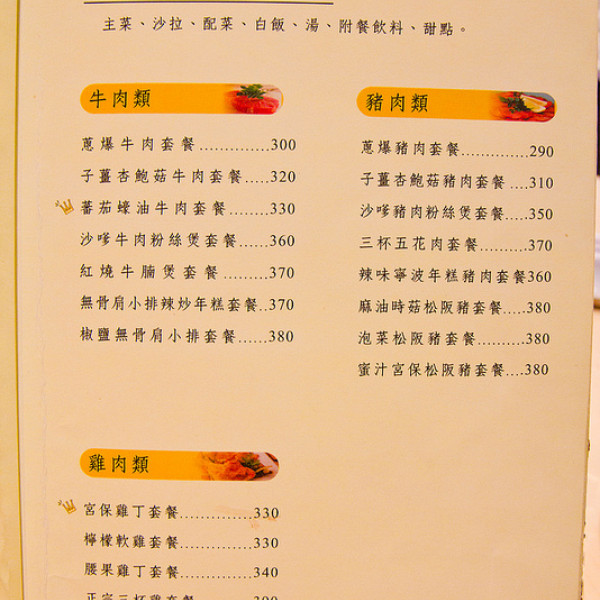 主菜、沙拉、配菜、白飯、湯、附餐飲料、甜點。
牛肉類
蔥爆牛肉套餐..............300
子薑杏鮑菇牛肉套餐.....320
蕃茄蠔油牛肉套餐........330
沙嗲牛肉粉絲煲套餐......360
紅燒牛腩煲套餐.........370
無骨肩小排辣炒年糕套餐..370
椒鹽無骨肩小排套餐......380
豬肉類
蔥爆豬肉套餐.............290
子薑杏鮑菇豬肉套餐....310
沙嗲豬肉粉絲煲套餐.....350
三杯五花肉套餐..........370
辣味寧波年糕豬肉套餐360
麻油時菇松阪豬套餐.....380
泡菜松阪豬套餐..........380
蜜汁宮保松阪豬套餐....380
雞肉類
宮保雞丁套餐..............330
檸檬軟雞套餐..............330
腰果雞丁套餐..............340
正宗三杯雞套餐